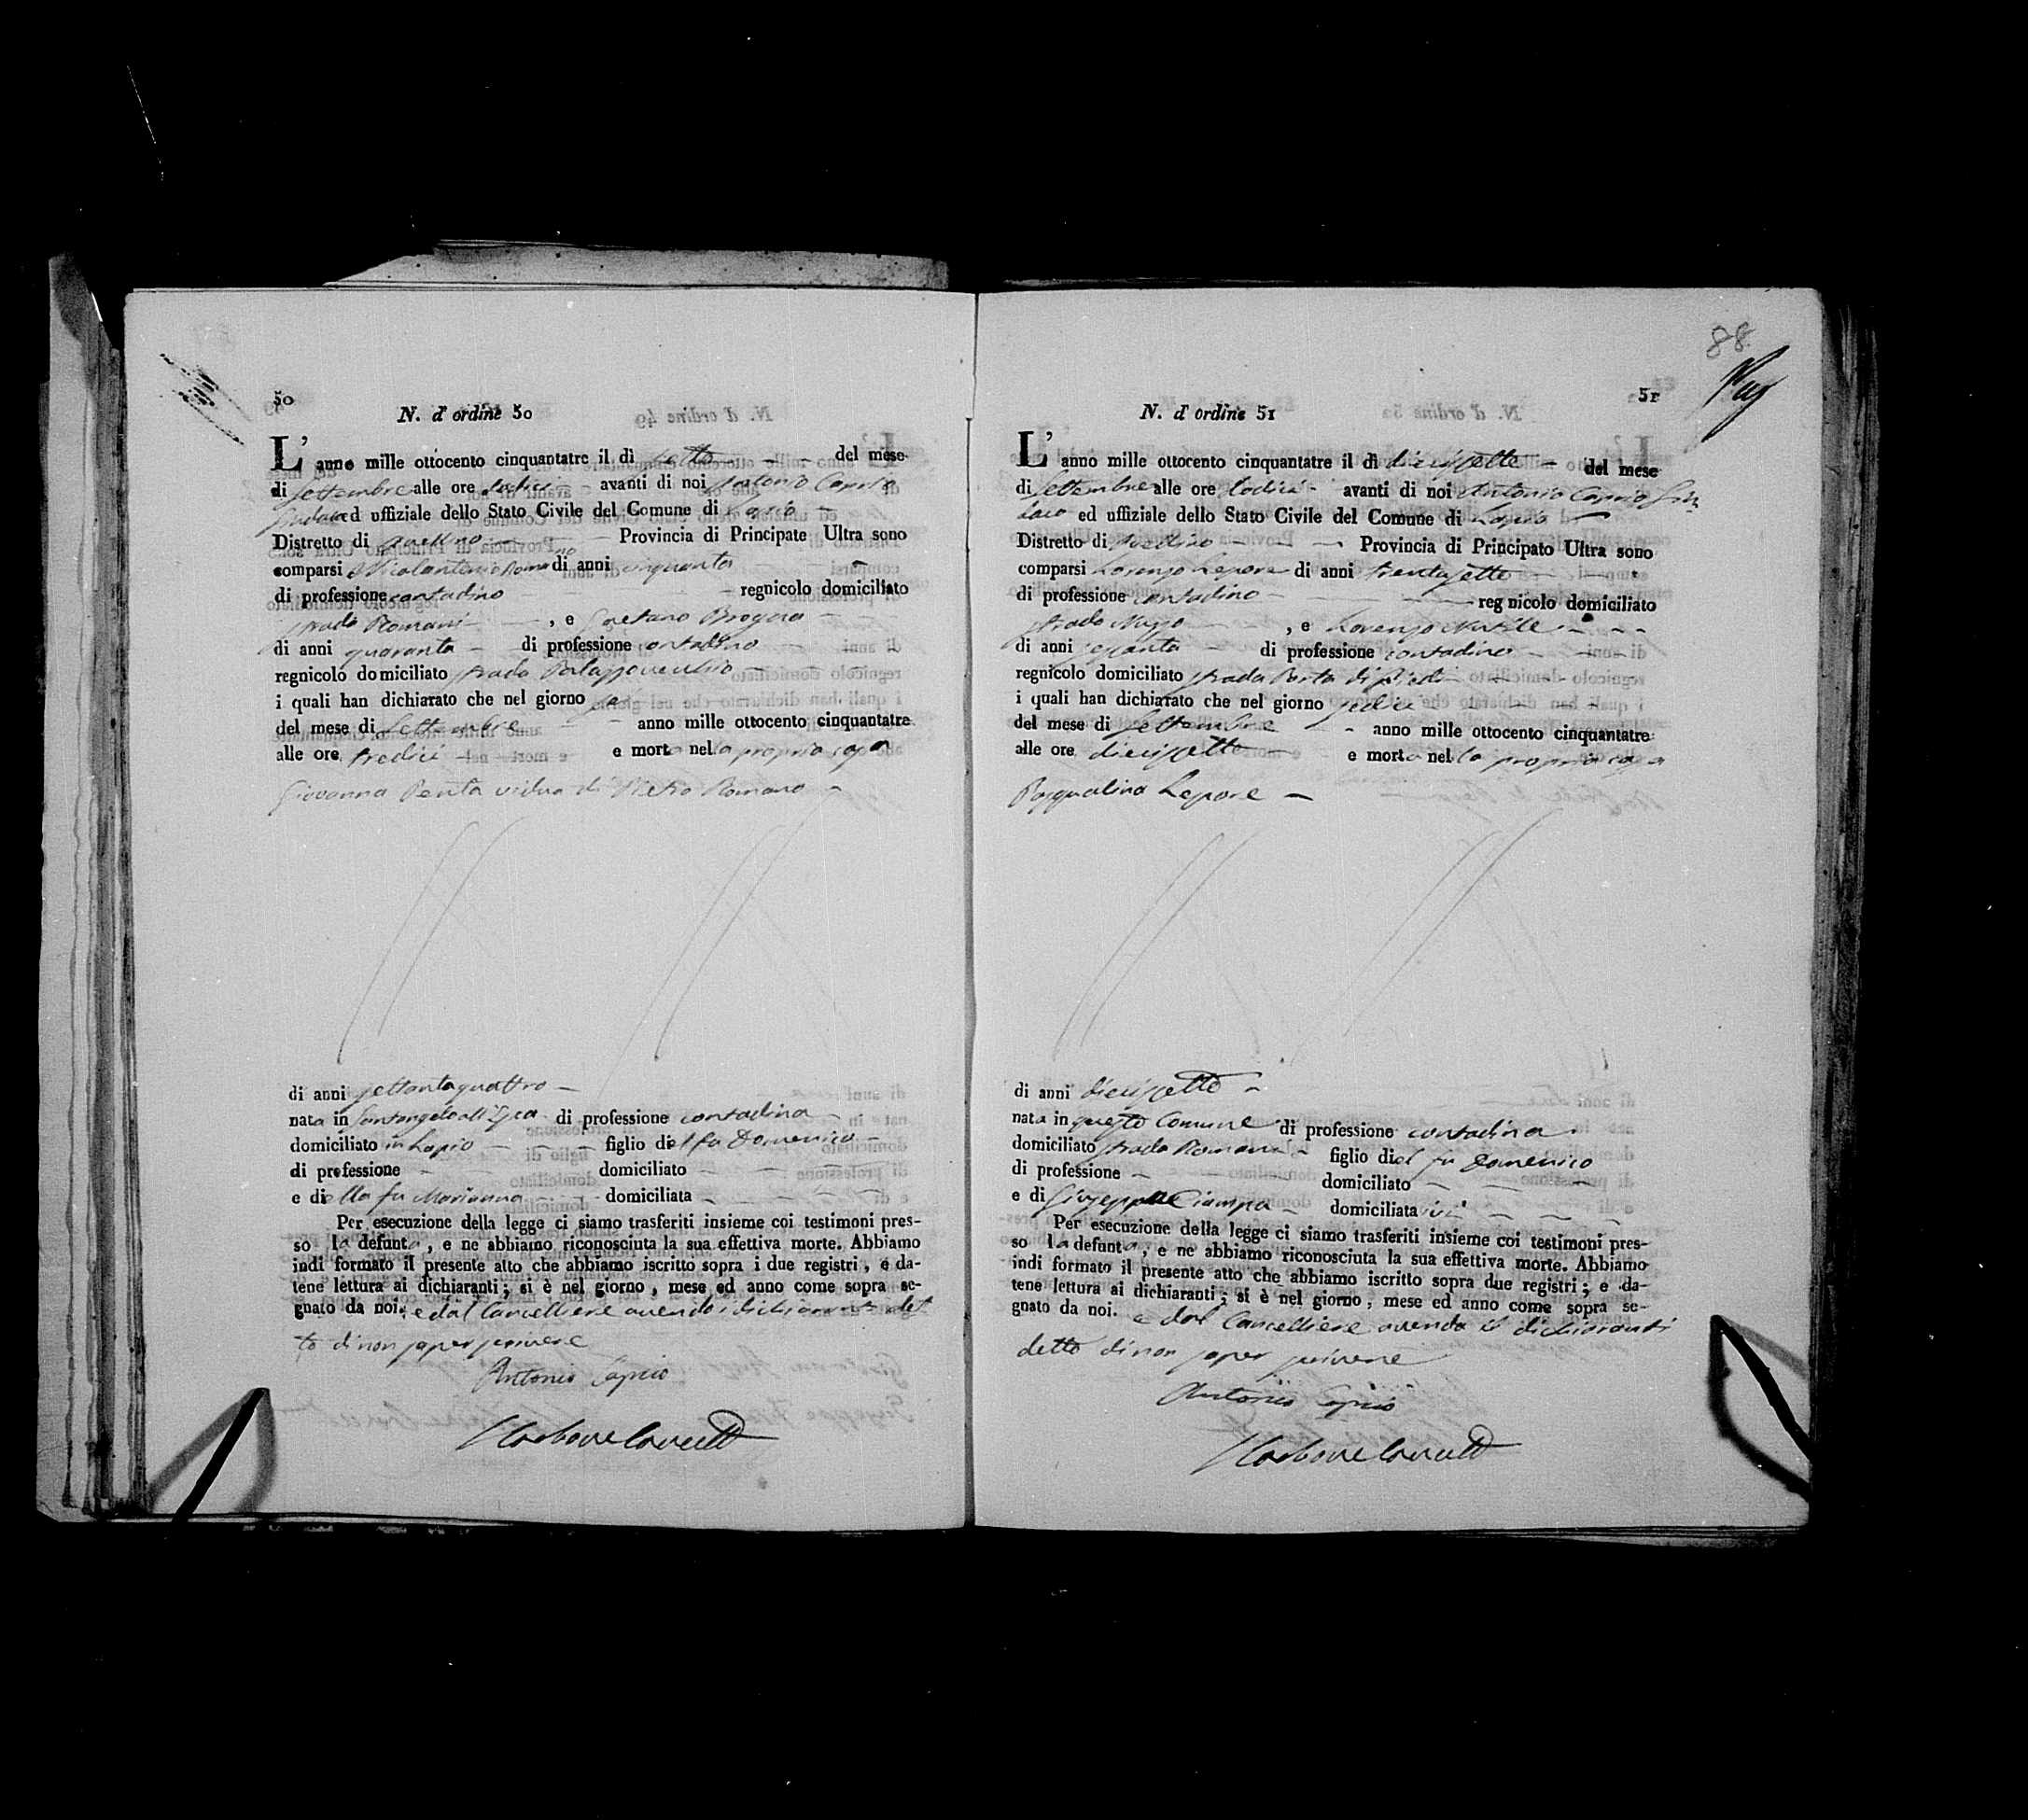 50
N. d' ordine 50
L' anno mille ottocento cinquantatre il dì sette del mese
di Settembre alle ore dodici avanti di noi Antonio Caprio
Sindaco ed uffiziale dello Stato Civile del Comune di Lapio
Distretto di Avellino Provincia di Principato Ultra sono
comparsi Nicolantonio Romano di anni cinquanta
di professione contadino regnicolo domiciliato
strada Romani , e Gaetano Brogna
di anni quaranta di professione contadino
regnicolo domiciliato strada Palazzovecchio
i quali han dichiarato che nel giorno sei
del mese di Settembre anno mille ottocento cinquantatre
alle ore tredici e morta nella propria casa
Giovanna Penta vidua di Pietro Romano
di anni settantaquattro
nata in Santangelo all'Esca di professione contadina
domiciliato in Lapio figlio di del fu Domenico
di professione domiciliato
e di ella fu Marianna domiciliata
Per esecuzione della legge ci siamo trasferiti insieme coi testimoni pres-
so la defunta, e ne abbiamo riconosciuta la sua effettiva morte. Abbiamo
indi formato il presente atto che abbiamo iscritto sopra i due registri, e da-
tene lettura ai dichiaranti; si è nel giorno, mese ed anno come sopra se-
gnato da noi: e dal Cancelliere avendo i dichiaranti det
to di non saper scrivere
Antonio Caprio
88
51
N. d' ordine 51
L' anno mille ottocento cinquantatre il dì diecissette del mese
di Settembre alle ore dodici avanti di noi Antonio Caprio Sin
daco ed uffiziale dello Stato Civile del Comune di Lapio
Distretto di Avellino Provincia di Principato Ultra sono
comparsi Lorenzo Lepore di anni trentasette
di professione contadino regnicolo domiciliato
strada , e Lorenzo
di anni sessanta di professione contadino
regnicolo domiciliato strada Porta di
i quali han dichiarato che nel giorno sedici
del mese di Settembre anno mille ottocento cinquantatre
alle ore diecissette e morta nella propria casa
Pasqualina Lepore
di anni diecissette
nata in questo Comune di professione contadina
domiciliato strada Romani figlio di del fu Domenico
di professione domiciliato
e di Giuseppa Ciampa domiciliata ivi
Per esecuzione della legge ci siamo trasferiti insieme coi testimoni pres-
so la defunta, e ne abbiamo riconosciuta la sua effettiva morte. Abbiamo
indi formato il presente atto che abbiamo iscritto sopra due registri; e da-
tene lettura ai dichiaranti; si è nel giorno, mese ed anno come sopra se-
gnato da noi. e dal Cancelliere avendo i dichiaranti
detto di non saper scrivere
Antonio Caprio